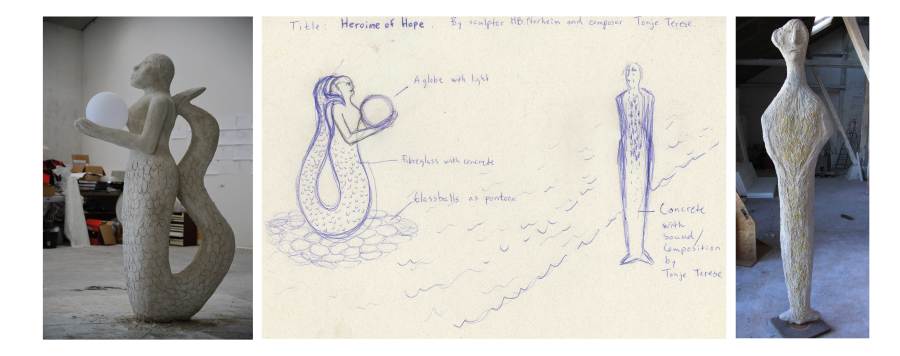 Title: Heroine of Hope. By sculptor HB. and composer Tonje Terese.
A globe with light
Fibreglass with concrete
Glassballs as pontoon
Concrete
with
sound/
Composition
by
Tonje Terese